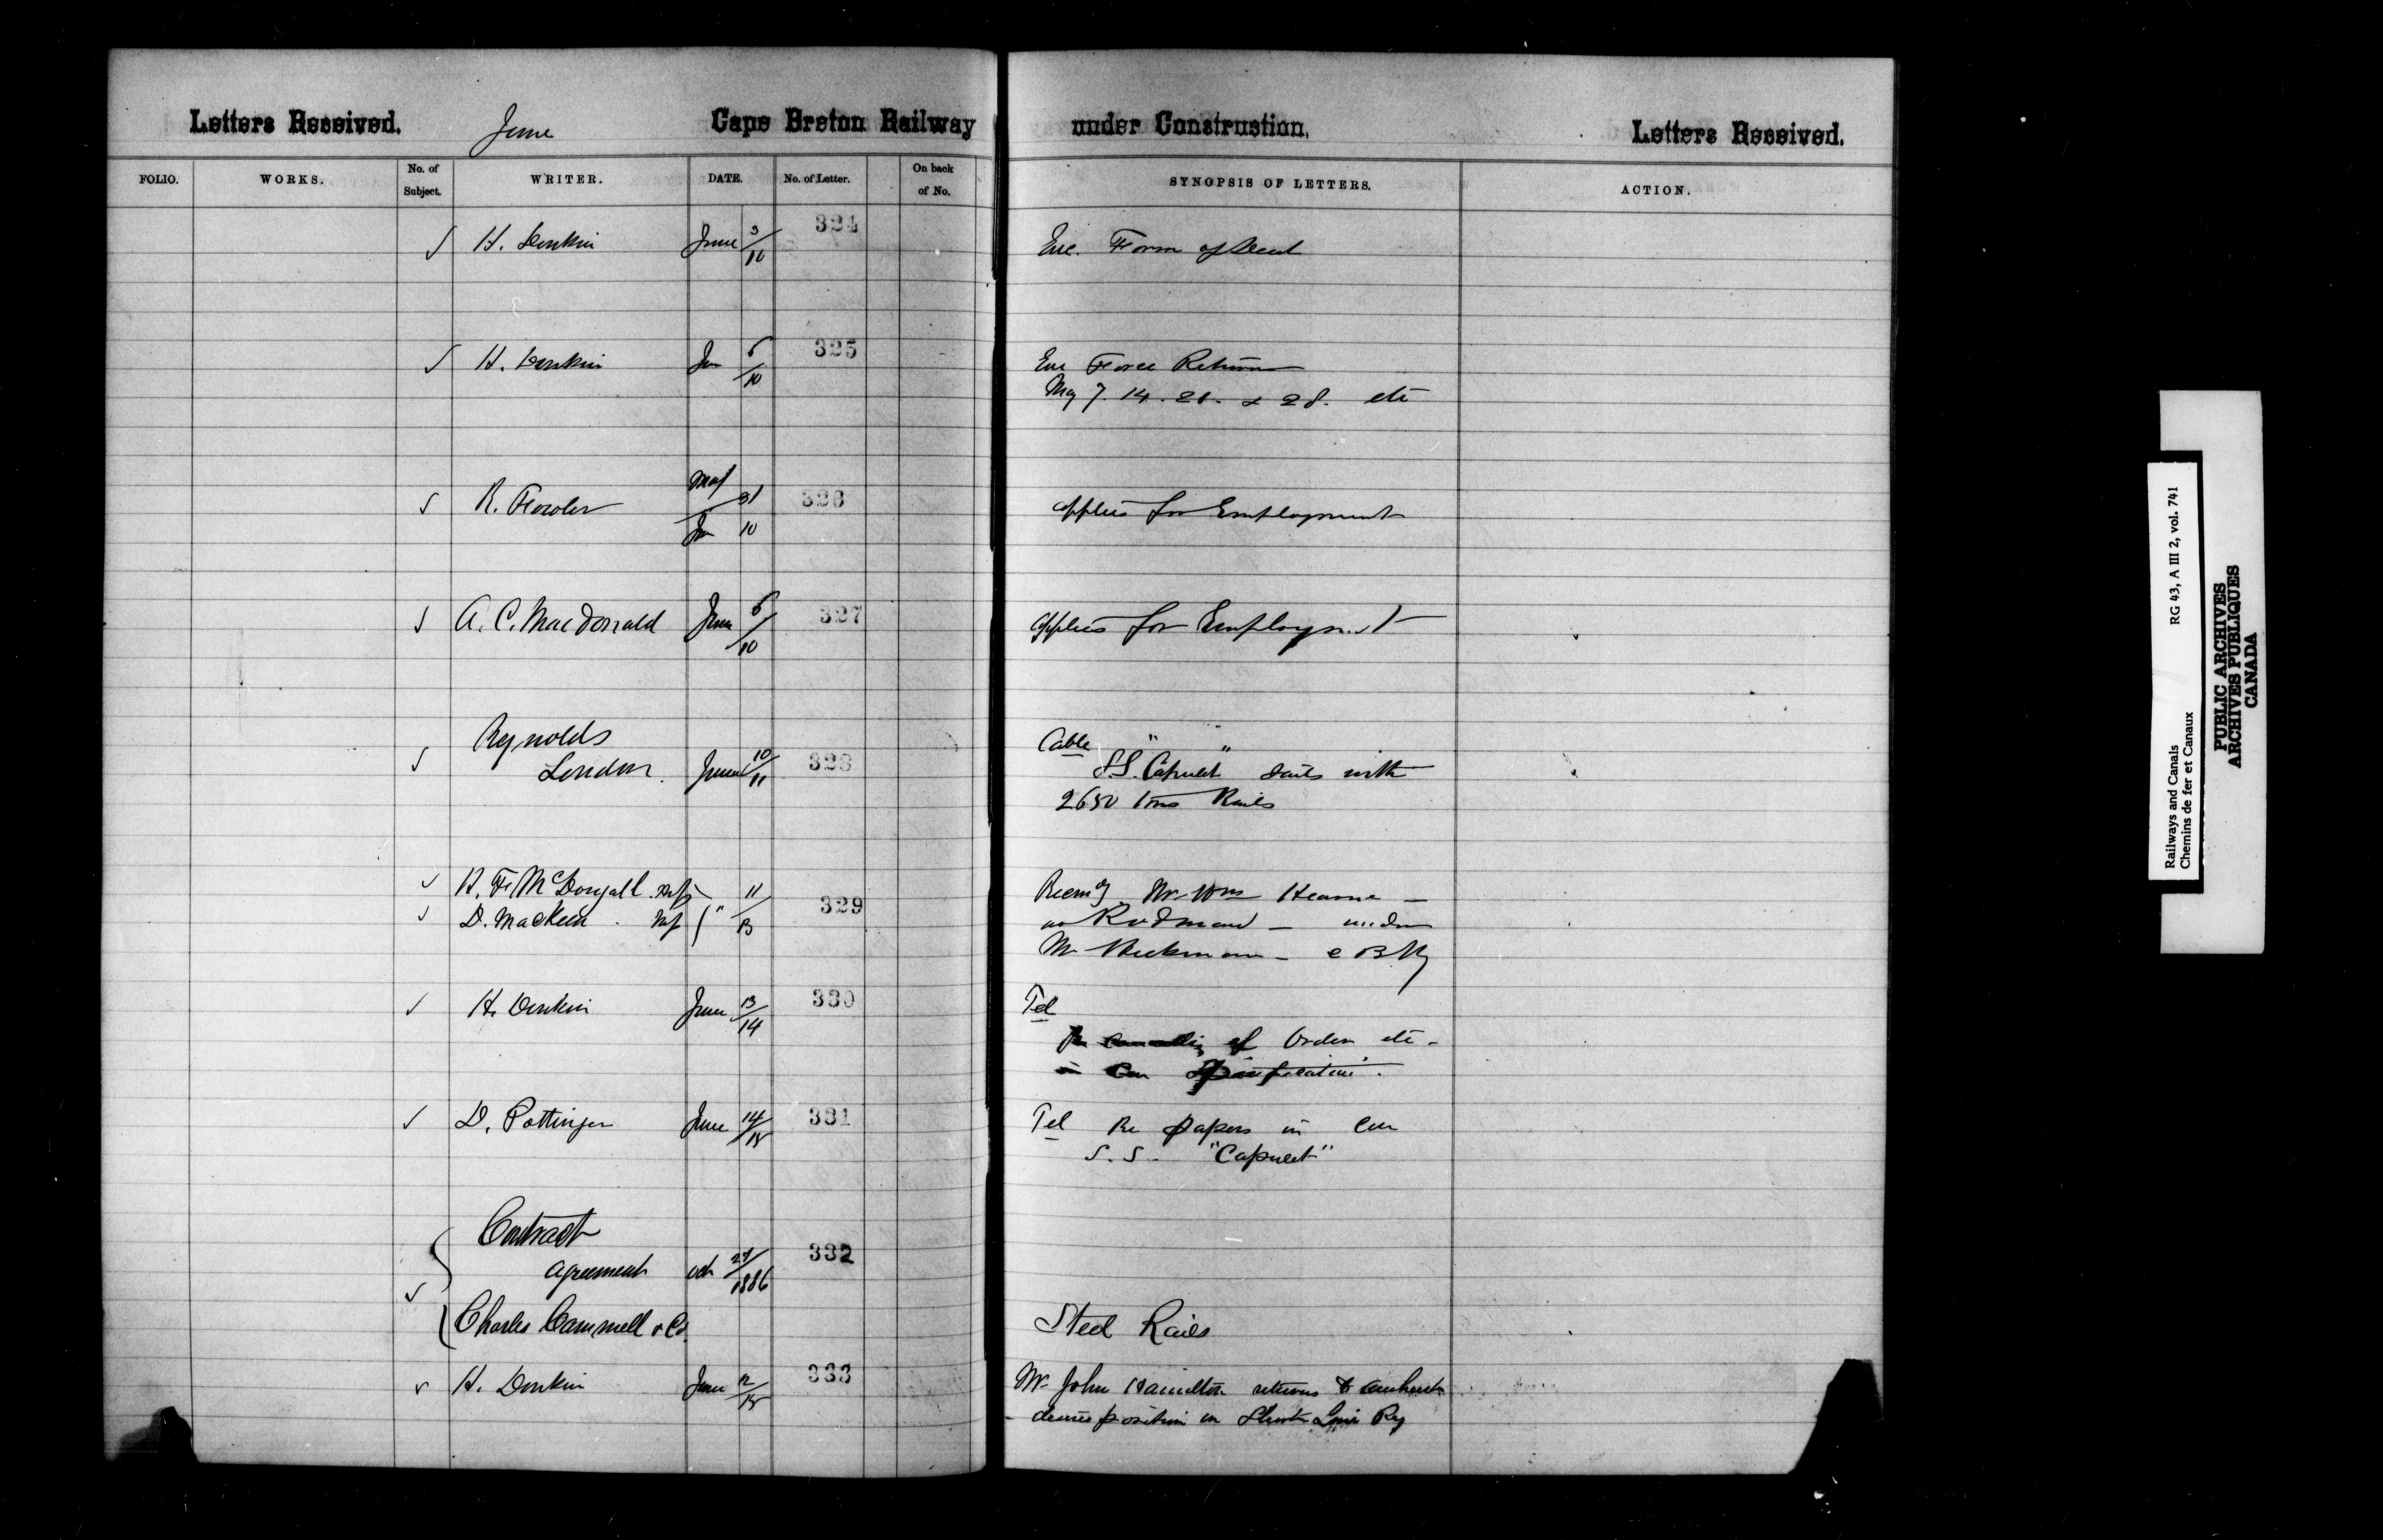 Letters Received. June Cape Breton Railway under Construction. Letters Received.
FOLIO. WORKS. No. of Subject. WRITER. DATE. No. of Letter. On back of No. SYNOPSIS OF LETTERS. ACTION.
H. Donkin June 3/10 324 Enc. Form of Deed
H. Donkin Jun 6/10 325 Enc Force Returns
May 7. 14. 21. & 28. etc
R. Fowler May 31 / Jun 10 326 applies for Employment
A. C. MacDonald June 6/10 327 applies for Employment
Reynolds
London. June 10/11 328 Cable
S.S. "Capulet" sails with
2650 tons Rails
H. F. McDougall M.P. 11
D. MacKeen M.P. " 13 329
Recmg Mr. Wm Hearne
as Rodman under
Mr Hickman C B Ry
H. Donkin June 13/14 330 Tel
of Order etc.
Specification.
D. Pottinger June 14/15 331 Tel Re papers in Con
S.S. "Capulet"
Contract
agreement Oct 27/1886 332
Charles Cammell & Co. Steel Rails
H. Donkin June 12/15 333 Mr John Hamilton returns to Amherst
desires position on Short Line Ry
Railways and Canals RG 43, A III 2, vol. 741
Chemins de fer et Canaux
PUBLIC ARCHIVES
ARCHIVES PUBLIQUES
CANADA